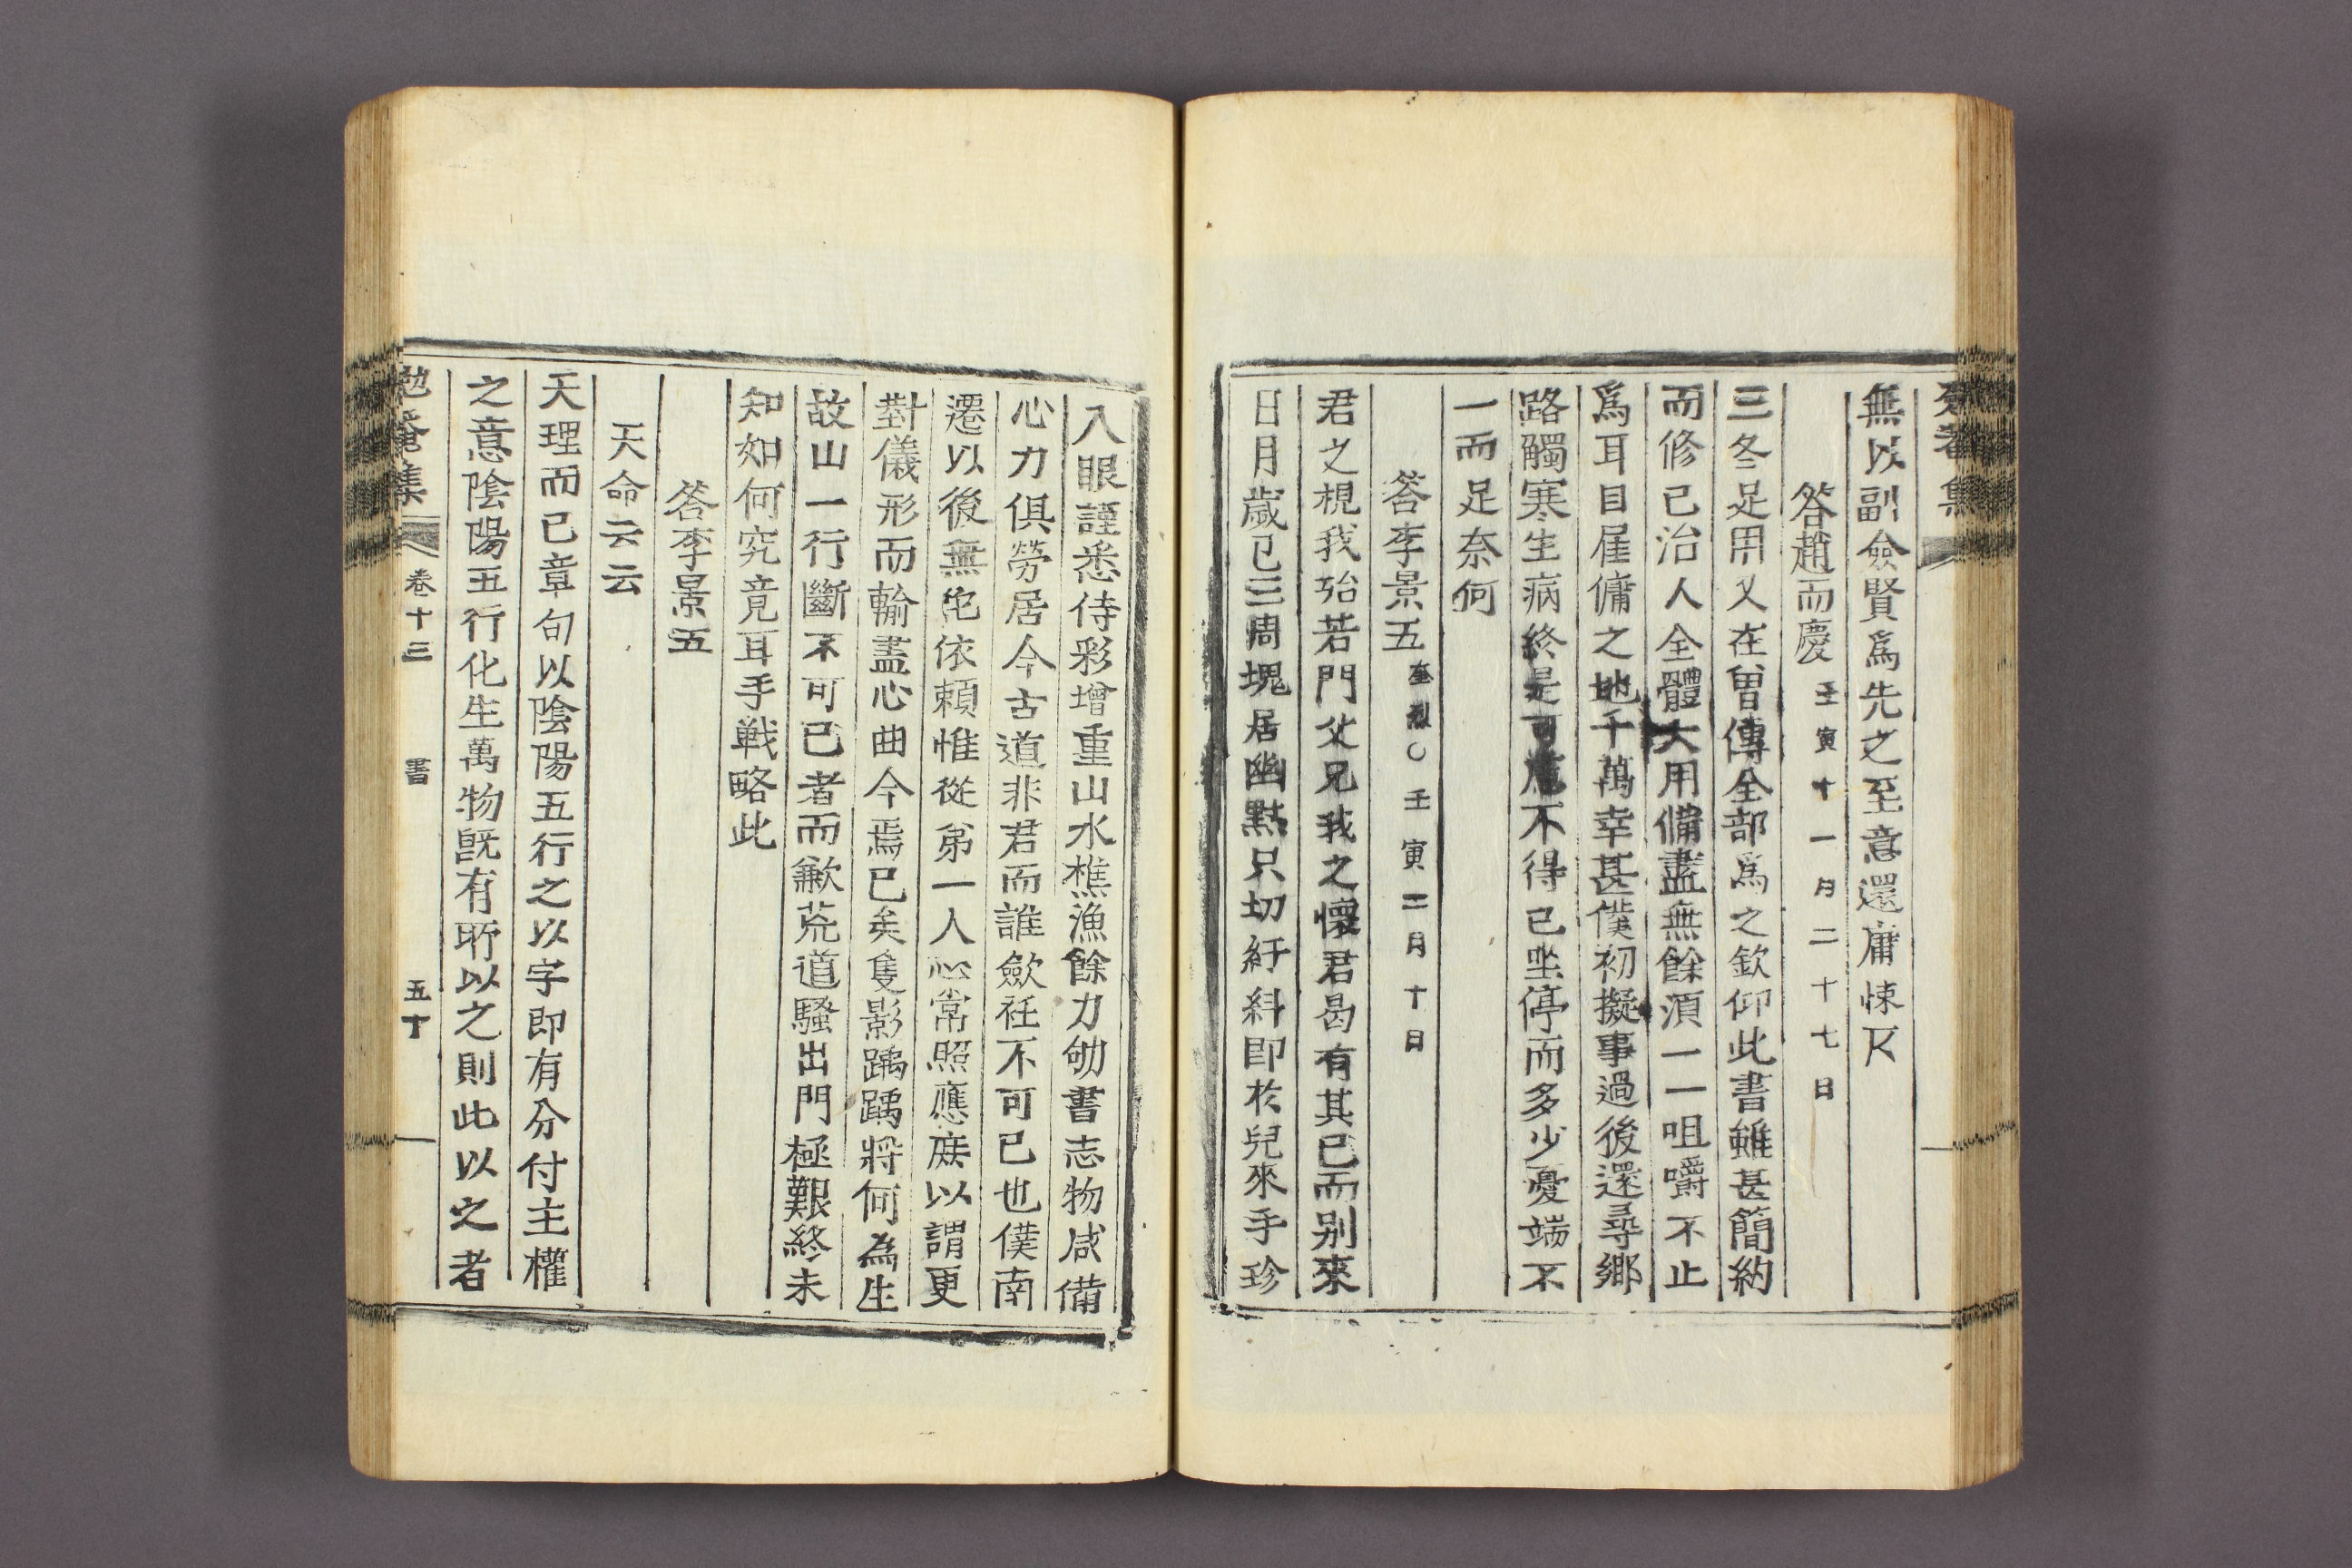 勉菴集
無以副僉賢爲先之至意還庸悚仄
答趙而慶壬寅十一月二十七日
三冬足用又在曽傳全部爲之欽仰此書雖甚簡約
而修已治人全體大用備盡無餘湏一一咀嚼不止
爲耳目雇傭之地千萬幸甚僕初擬事過後還尋鄉
路觸寒生病終是可慮不得已坐停而多少憂端不
一而足奈何
答李景五奎烈○壬寅二月十日
君之視我殆若門父兄我之懷君曷有其已而别來
日月歲已三周塊居幽黙只切紆斜卽於兒來手珍
入眼謹悉侍彩增重山水樵漁餘力劬書志物咸備
心力俱勞居今古道非君而誰歛衽不可已也僕南
遷以後無佗依頼惟從弟一人心常照應庶以謂更
對儀形而輸盡心曲今焉已矣隻影踽踽將何為生
故山一行斷不可已者而歉荒道騷出門極艱終未
知如何究竟耳手戦略此
答李景五
天命云云
天理而已章句以陰陽五行之以字即有分付主權
之意陰陽五行化生萬物旣有所以之則此以之者
勉菴集 卷十三 書 五十